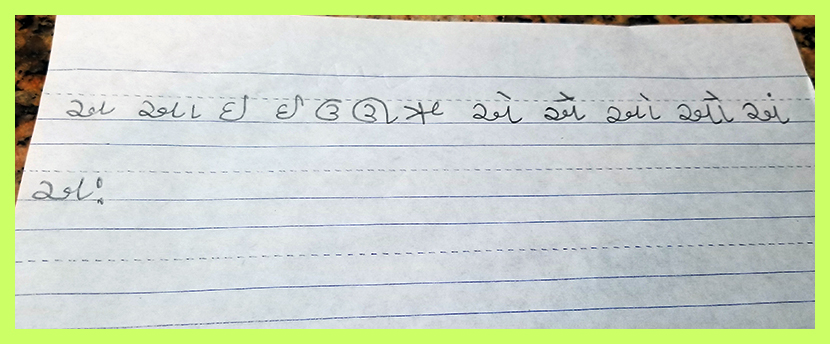 અ આ ઇ ઈ ઉ ઊ ઋ એ ઐ ઓ ઔ અં
અઃ